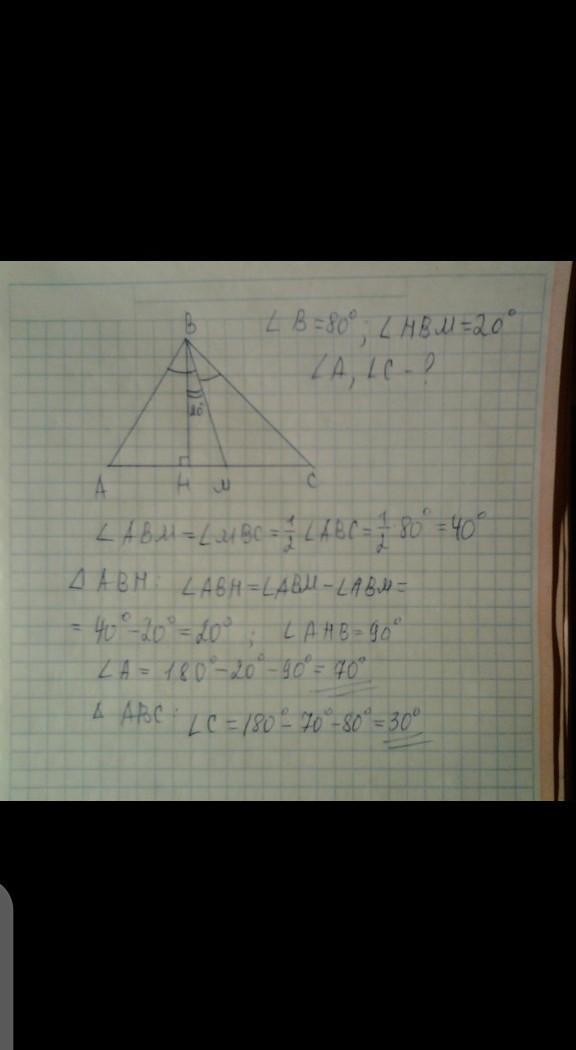 B
∠B=80°; ∠HBM=20°
∠A, ∠C - ?
20°
A H M C
∠ABM=∠MBC=1/2 ∠ABC=1/2·80°=40°
△ABH: ∠ABH=∠ABM-∠ABM=
=40°-20°=20°; ∠AHB=90°
∠A=180°-20°-90°=70°
△ABC: ∠C=180°-70°-80°=30°